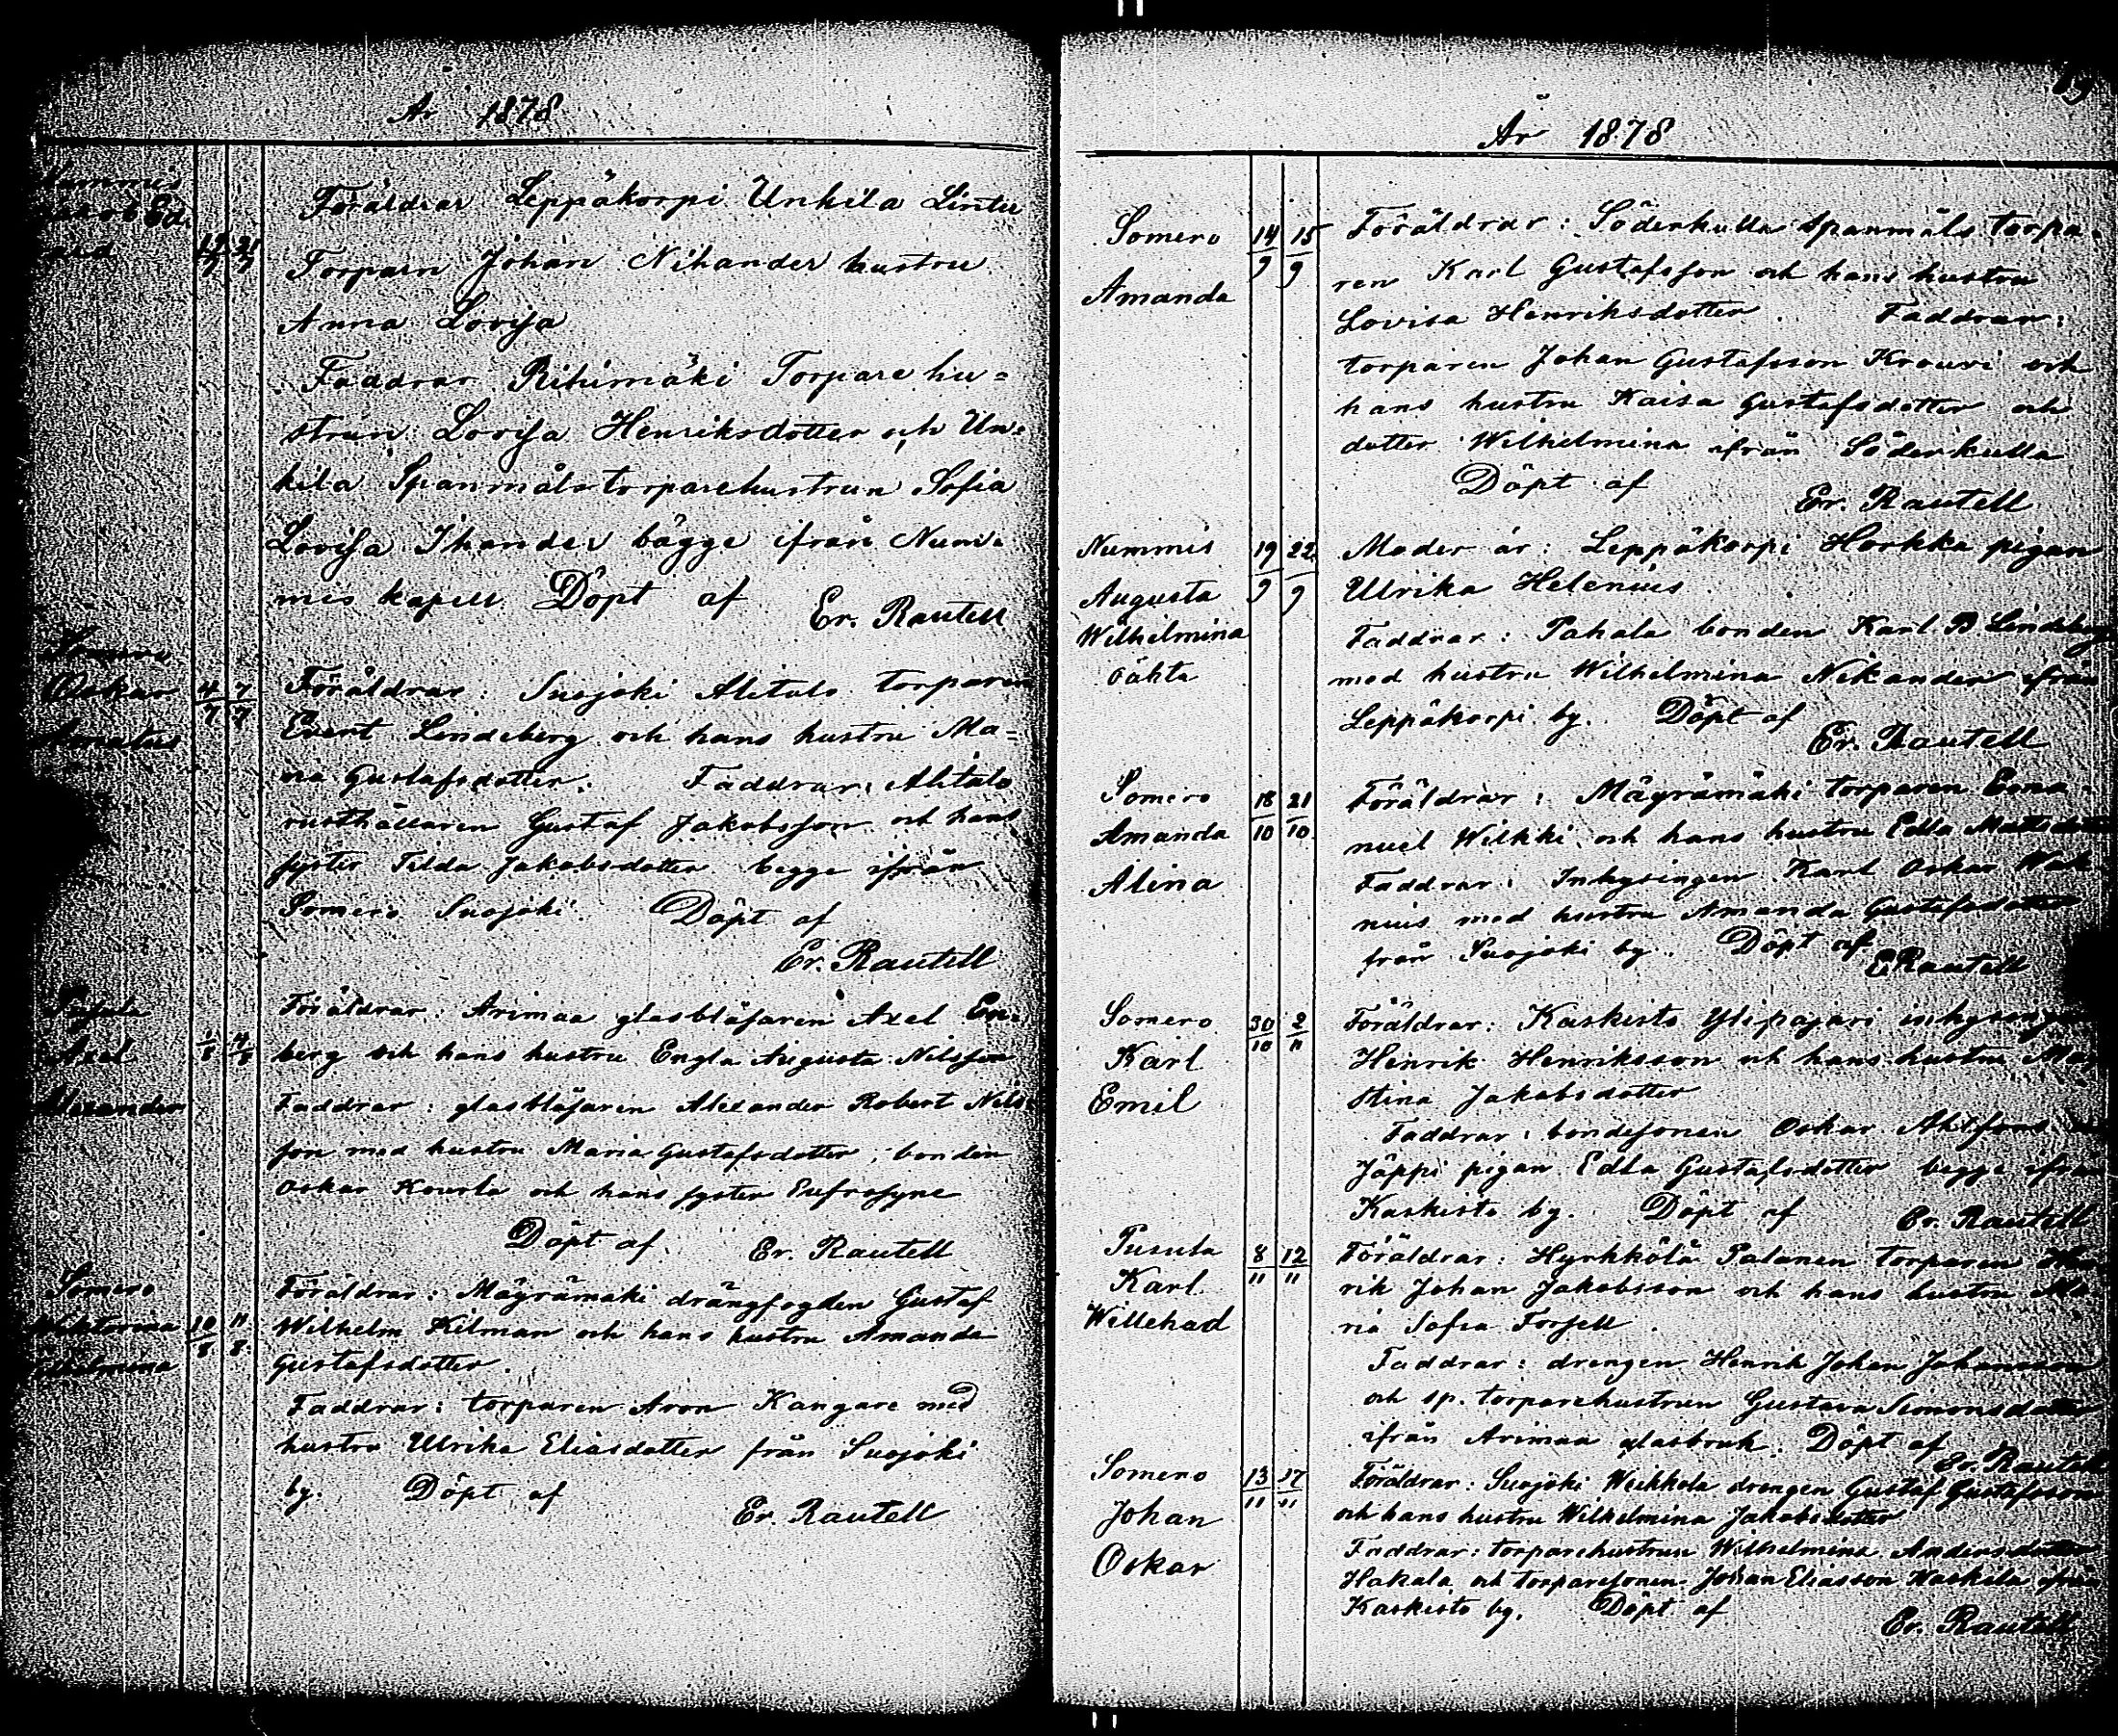 År 1878
Nummis
Jakob Ed.
vard
19/7 21/7
Föräldrar Leppäkorpi Unkila Linter
Torparn Johan Nikander hustru
Anna Lovisa
Faddrar Riihimäki Torpare hu=
strun Lovisa Henriksdotter och Un=
kila Spanmåls torparehustrun Sofia
Lovisa Ikander bägge ifrån Num=
mis kapell Döpt af Er. Rautell
Somero
Oskar
Amatus
4/7 7/7
Föräldrar: Suojoki Alitalo torparen
Evert Lindeberg och hans hustru Ma=
ria Gustafsdotter. Faddrar: Alitalo
rusthållaren Gustaf Jakobsson och hans
syster Tilda Jakobsdotter begge ifrån
Somero Suojoki. Döpt af
Er. Rautell
Pusula
Axel
Alexander
1/8 4/8
Föräldrar: Arimaa glasblåsaren Axel En=
berg och hans hustru Engla Augusta Nilsson
Faddrar: glasblåsaren Alexander Robert Nils=
son med hustru Maria Gustafsdotter, bonden
Oskar Kourla och hans syster Eufrosyne
Döpt af Er. Rautell
Somero
Wiktorina
Wilhelmina
10/8 11/8
Föräldrar: Mäyrämäki drängfogden Gustaf
Wilhelm Kilman och hans hustru Amanda
Gustafsdotter.
Faddrar: torparen Aron Kangare med
hustru Ulrika Eliasdotter från Suojoki
by. Döpt af
Er. Rautell
År 1878
Somero
Amanda
14/9 15/9
Föräldrar: Söderkulla spanmåls torpa=
ren Karl Gustafsson och hans hustru
Lovisa Henriksdotter. Faddrar:
torparen Johan Gustafsson Krouvi och
hans hustru Kaisa Gustafsdotter och
dotter Wilhelmina ifrån Söderkulla
Döpt af
Er. Rautell
Nummis
Augusta
Wilhelmina
oäkta
19/9 22/9
Moder är: Leppäkorpi Horkka pigan
Ulrika Helenius
Faddrar: Pahala bonden Karl B. Lindeberg
med hustru Wilhelmina Nikander ifrån
Leppäkorpi by. Döpt af
Er. Rautell
Somero
Amanda
Alina
18/10 21/10
Föräldrar: Mäyrämäki torparen Ema=
nuel Wilkki och hans hustru Edla Matsdotter
Faddrar: Inhysingen Karl Oskar
nius med hustru Amanda Gustafsdotter
från Suojoki by. Döpt af
E Rautell
Somero
Karl
Emil
30/10 2/11
Föräldrar: Kaskisto Ylipajari inhysingen
Henrik Henriksson och hans hustru Ma
stina Jakobsdotter
Faddrar: bondesonen Oskar Ahlfors
Jäppi pigan Edla Gustafsdotter begge ifrån
Kaskisto by. Döpt af Er. Rautell
Pusula
Karl
Willehad
8/11 12/11
Föräldrar: Hyrkkölä Palanen torparen Hen
rik Johan Jakobsson och hans hustru Ma
ria Sofia Forsell.
Faddrar: drengen Henrik Johan Johansson
och sp. torparehustrun Gustava Simonsdotter
ifrån Arimaa glasbruk. Döpt af
Er. Rautell
Somero
Johan
Oskar
13/11 17/11
Föräldrar: Suojoki Weikkola drengen Gustaf Gustafsson
och hans hustru Wilhelmina Jakobsdotter
Faddrar: torparehustrun Wilhelmina Andersdotter
Hakala och torparesonen Johan Eliasson Haskila ifrån
Kaskisto by. Döpt af
Er. Rautell